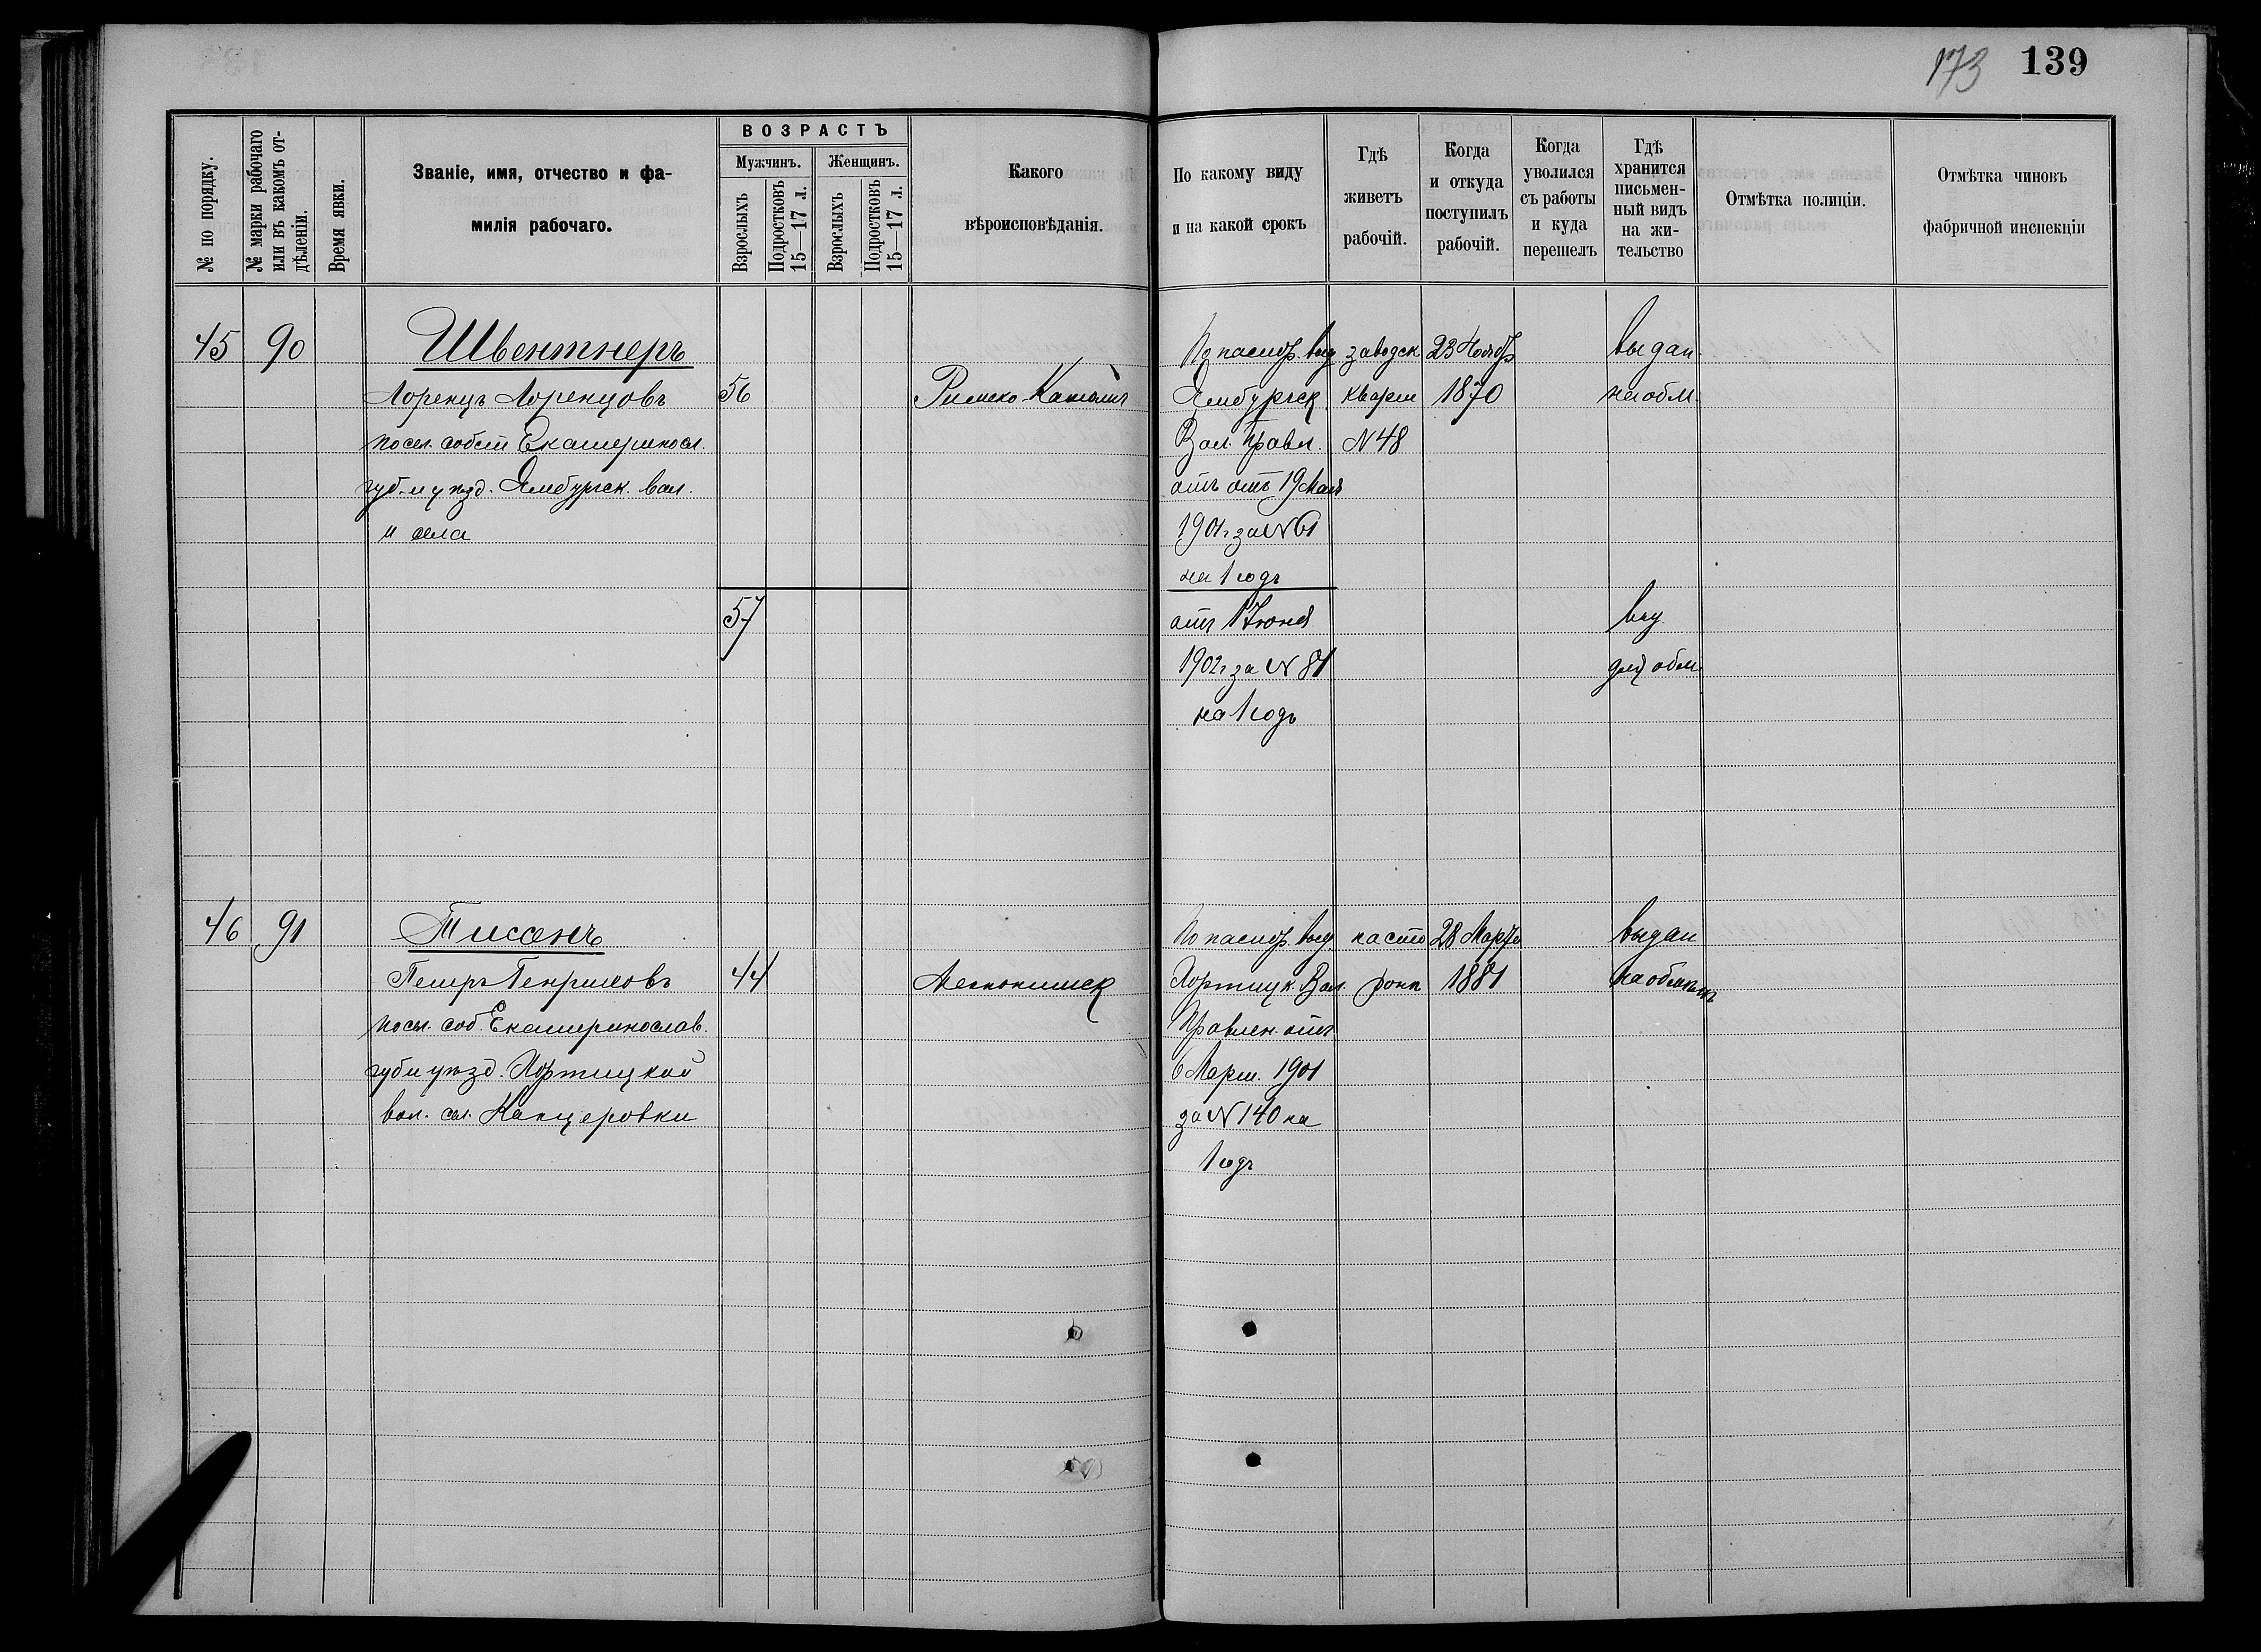 173 139
№ по порядку.
№ марки рабочаго или въ какомъ отдѣленіи.
Время явки.
Званіе, имя, отчество и фа-
милія рабочаго.
ВОЗРАСТЪ
Мужчинъ. Женщинъ.
Взрослыхъ
Подростковъ 15—17 л.
Взрослыхъ
Подростковъ 15—17 л.
Какого
вѣроисповѣданія.
По какому виду
и на какой срокъ
Гдѣ
живетъ
рабочій.
Когда
и откуда
поступилъ
рабочій.
Когда
уволился
съ работы
и куда
перешелъ
Гдѣ
хранится
письмен-
ный видъ
на жи-
тельство
Отмѣтка полиціи.
Отмѣтка чиновъ
фабричной инспекціи
45 90 Швентнеръ
Лоренцъ Лоренцовъ 56 Римско-Католич
посел. собст Екатериносл.
губ. и уѣзд. Ямбургск. вол.
и села
По паспор. выд
Ямбургск.
Вол. Правл.
отъ отъ 19 Мая
1901 г за № 61
на 1 годъ
заводск
кварт
№ 48
23 Ноябр
1870
выдан
на обм.
57
отъ 1 Іюня
1902 г за № 81
на 1 годъ
выд
для обм.
46 91 Тисенъ
Петръ Генриховъ 44 Менонитск
посел. соб. Екатеринослав.
губ и уѣзд. Хортицкой
вол. сел. Канцеровки
По паспор. выд
Хортицк. Вол.
Правлен. отъ
6 Март. 1901
за № 140 на
1 годъ
на сто
рон
28 Марта
1881
выдан
на обмѣнъ